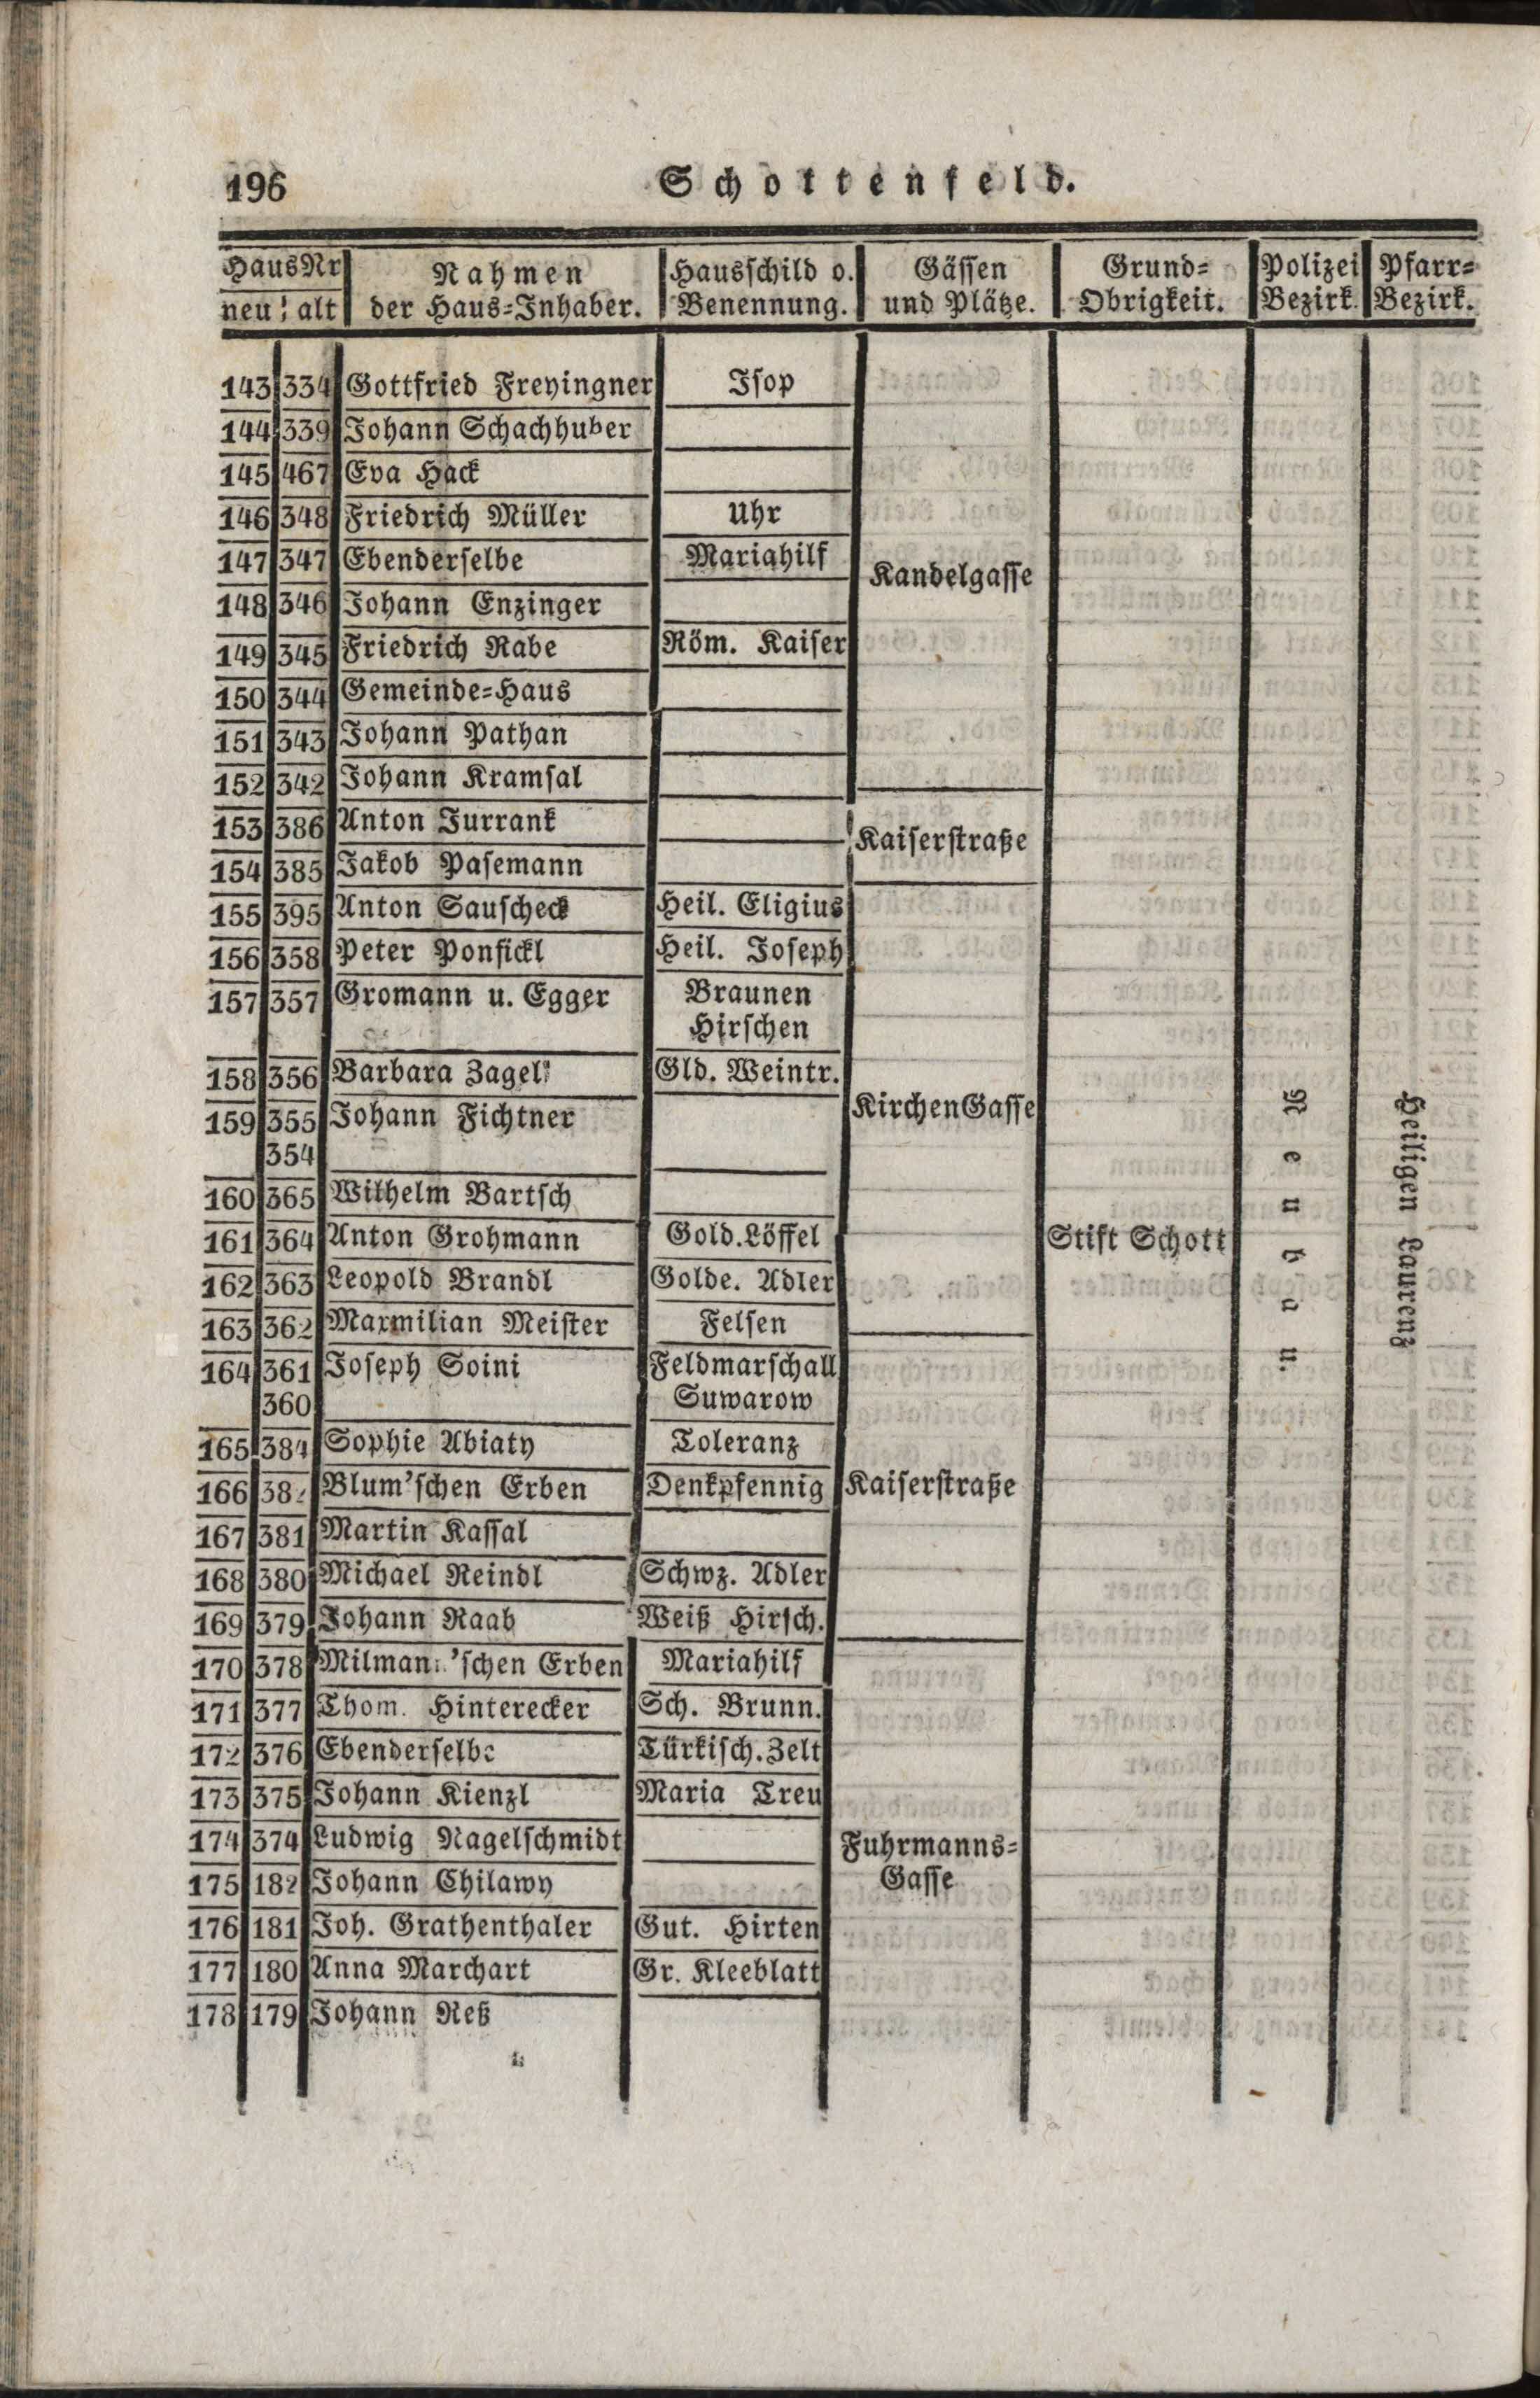 196 Schottenfeld.
HausNr Nahmen Hausschild o. Gässen Grund= Polizei Pfarr=
neu alt der Haus=Inhaber. Benennung. und Plätze. Obrigkeit. Bezirk. Bezirk.
143 334 Gottfried Freyingner Isop
144 339 Johann Schachhuber
145 467 Eva Hack
146 348 Friedrich Müller Uhr
147 347 Ebenderselbe Mariahilf
Kandelgasse
148 346 Johann Enzinger
149 345 Friedrich Rabe Röm. Kaiser
150 344 Gemeinde=Haus
151 343 Johann Pathan
152 342 Johann Kramsal
153 386 Anton Jurrank
Kaiserstraße
154 385 Jakob Pasemann
155 395 Anton Sauscheck Heil. Eligius
156 358 Peter Ponfickl Heil. Joseph
157 357 Gromann u. Egger Braunen
Hirschen
158 356 Barbara Zagel Gld. Weintr.
159 355 Johann Fichtner KirchenGasse
354
160 365 Wilhelm Bartsch
161 364 Anton Grohmann Gold.Löffel Stift Schott
162 363 Leopold Brandl Golde. Adler
163 362 Maxmilian Meister Felsen
164 361 Joseph Soini Feldmarschall
360 Suwarow
165 384 Sophie Abiaty Toleranz
166 382 Blum'schen Erben Denkpfennig Kaiserstraße
167 381 Martin Kassal
168 380 Michael Reindl Schwz. Adler
169 379 Johann Raab Weiß Hirsch.
170 378 Milmann'schen Erben Mariahilf
171 377 Thom. Hinterecker Sch. Brunn.
172 376 Ebenderselbe Türkisch.Zelt
173 375 Johann Kienzl Maria Treu
174 374 Ludwig Nagelschmidt Fuhrmanns=
Gasse
175 182 Johann Chilawy
176 181 Joh. Grathenthaler Gut. Hirten
177 180 Anna Marchart Gr. Kleeblatt
178 179 Johann Reß
Neubau.
Heiligen Laurenz